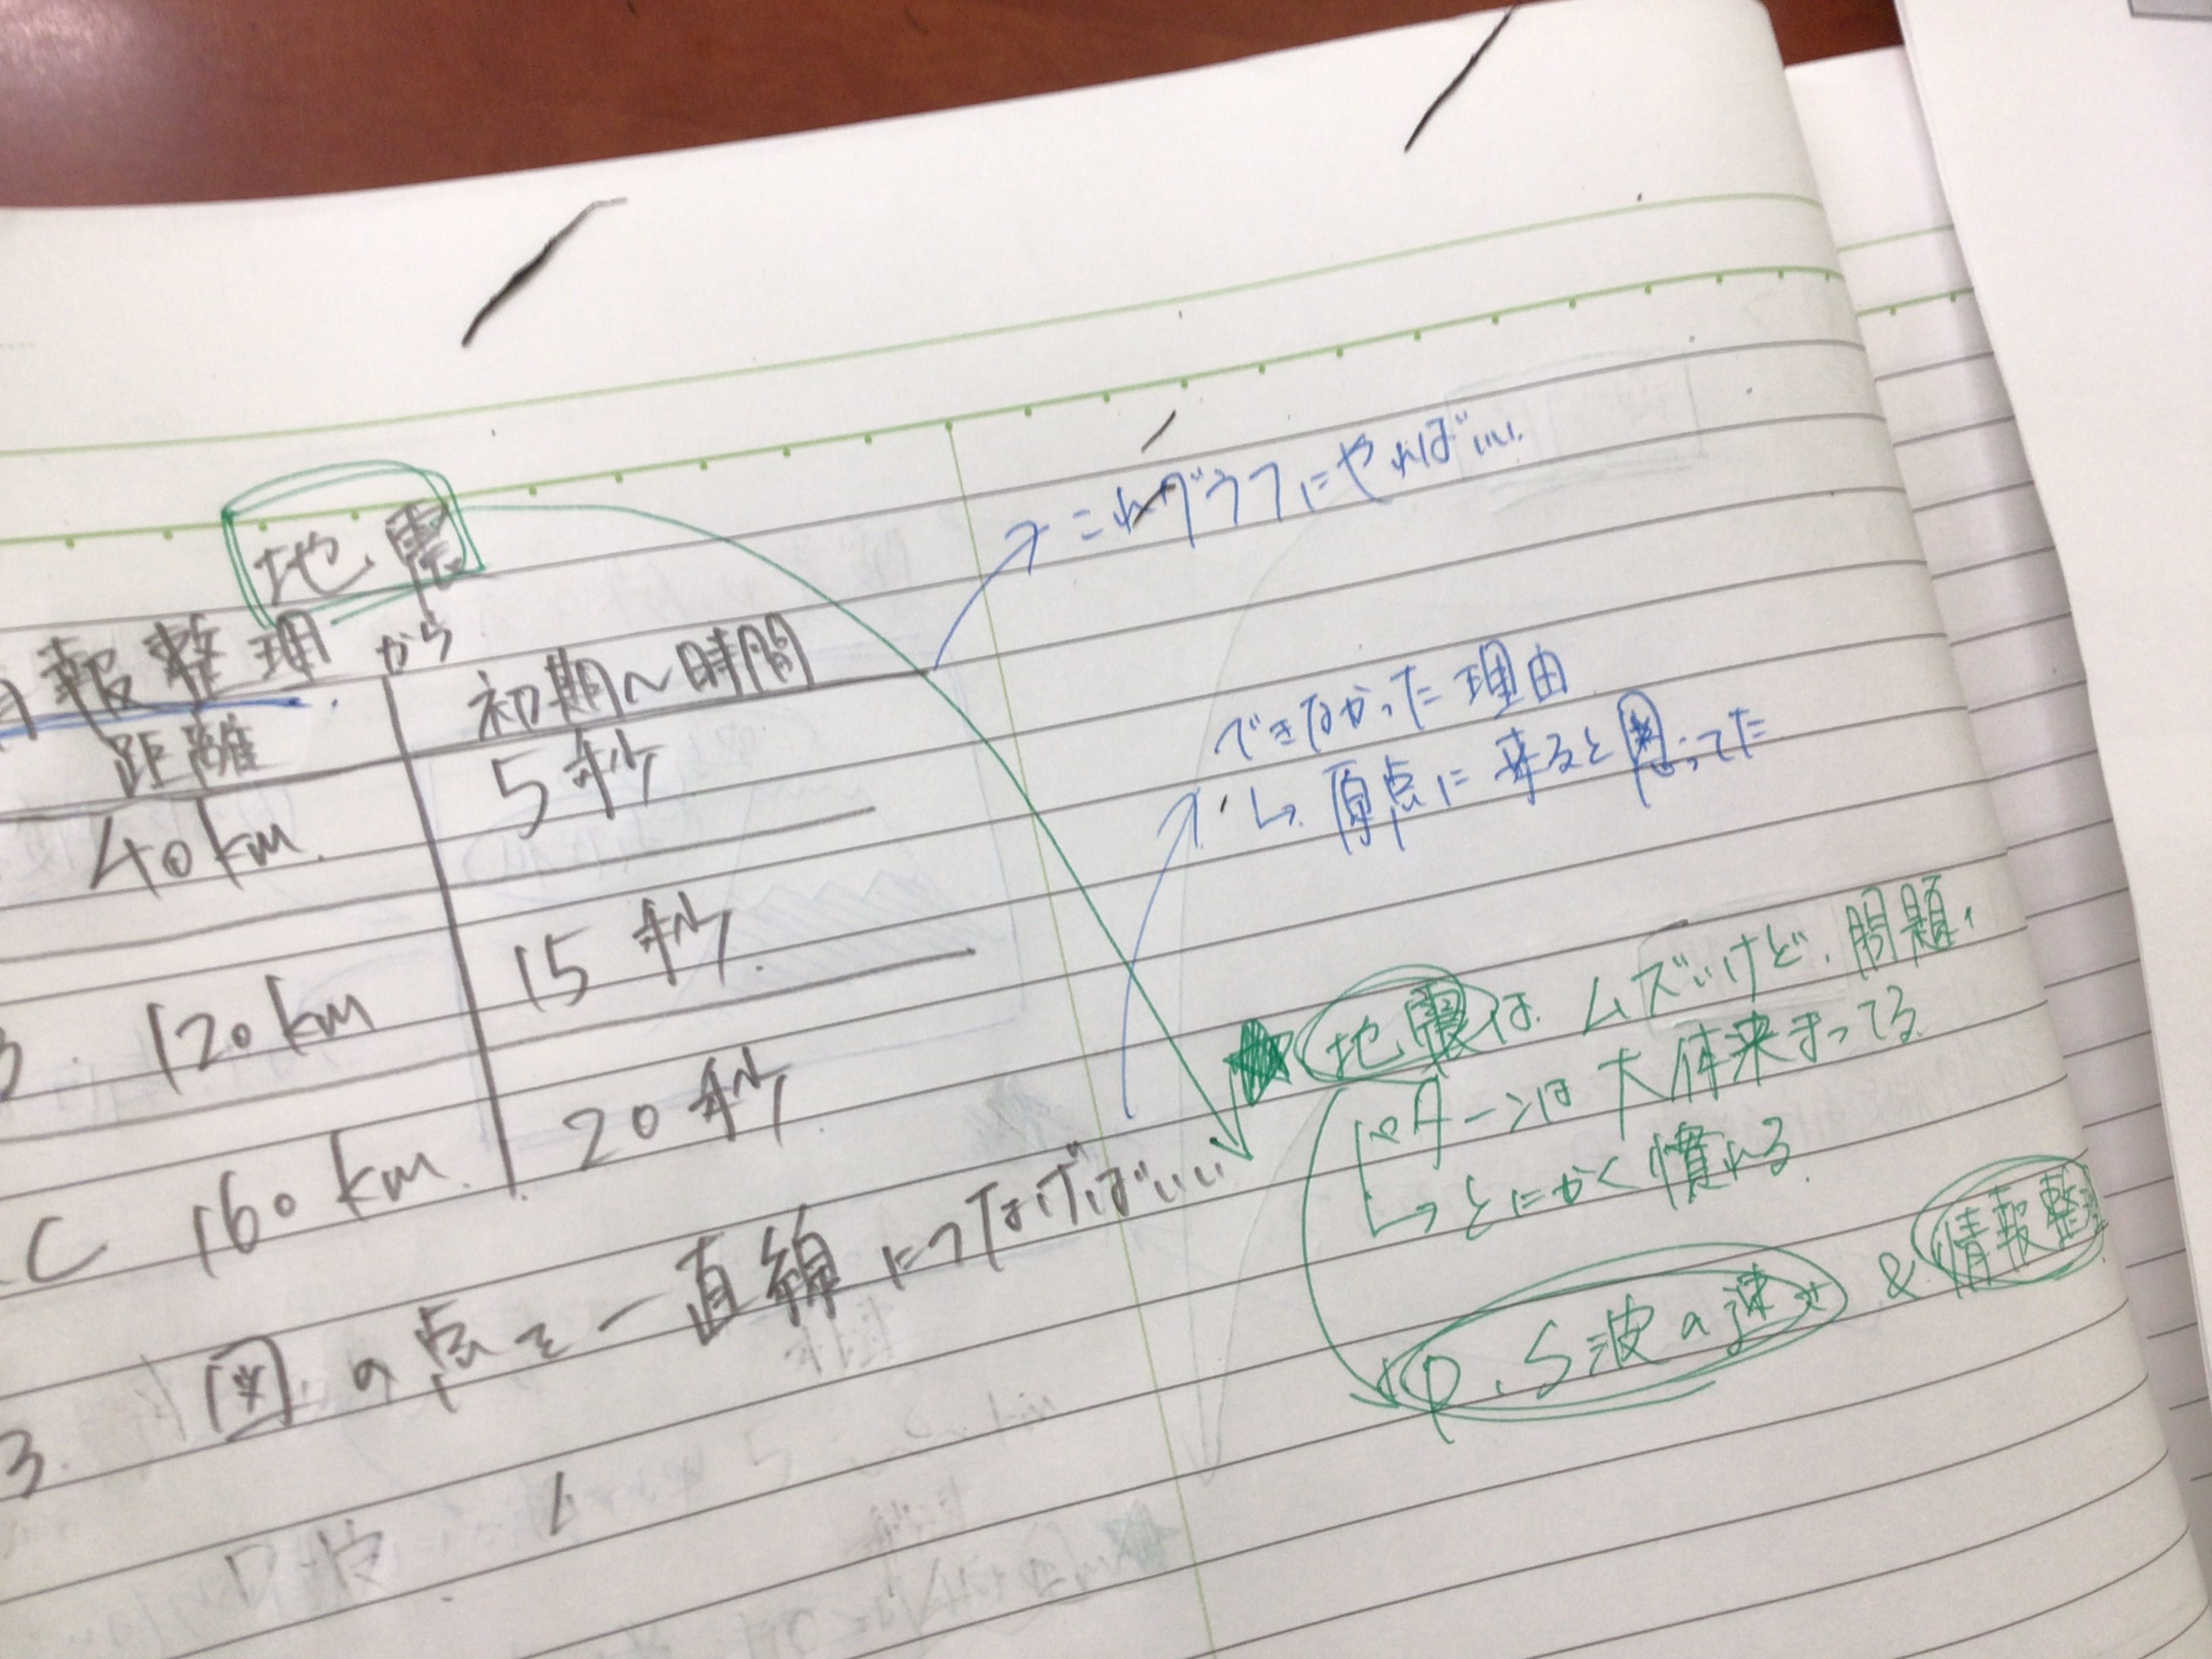 地震
情報整理から
距離 初期〜時間
40km 5秒
B 120km 15秒
C 160km 20秒
3. 図の点を一直線につなげばいい
P波
→これグラフにやればいい
できなかった理由
↳原点に来ると思ってた
★地震はムズいけど、問題、
パターンは大体来まってる
↳とにかく慣れる
P、S波の速さ & 情報整理